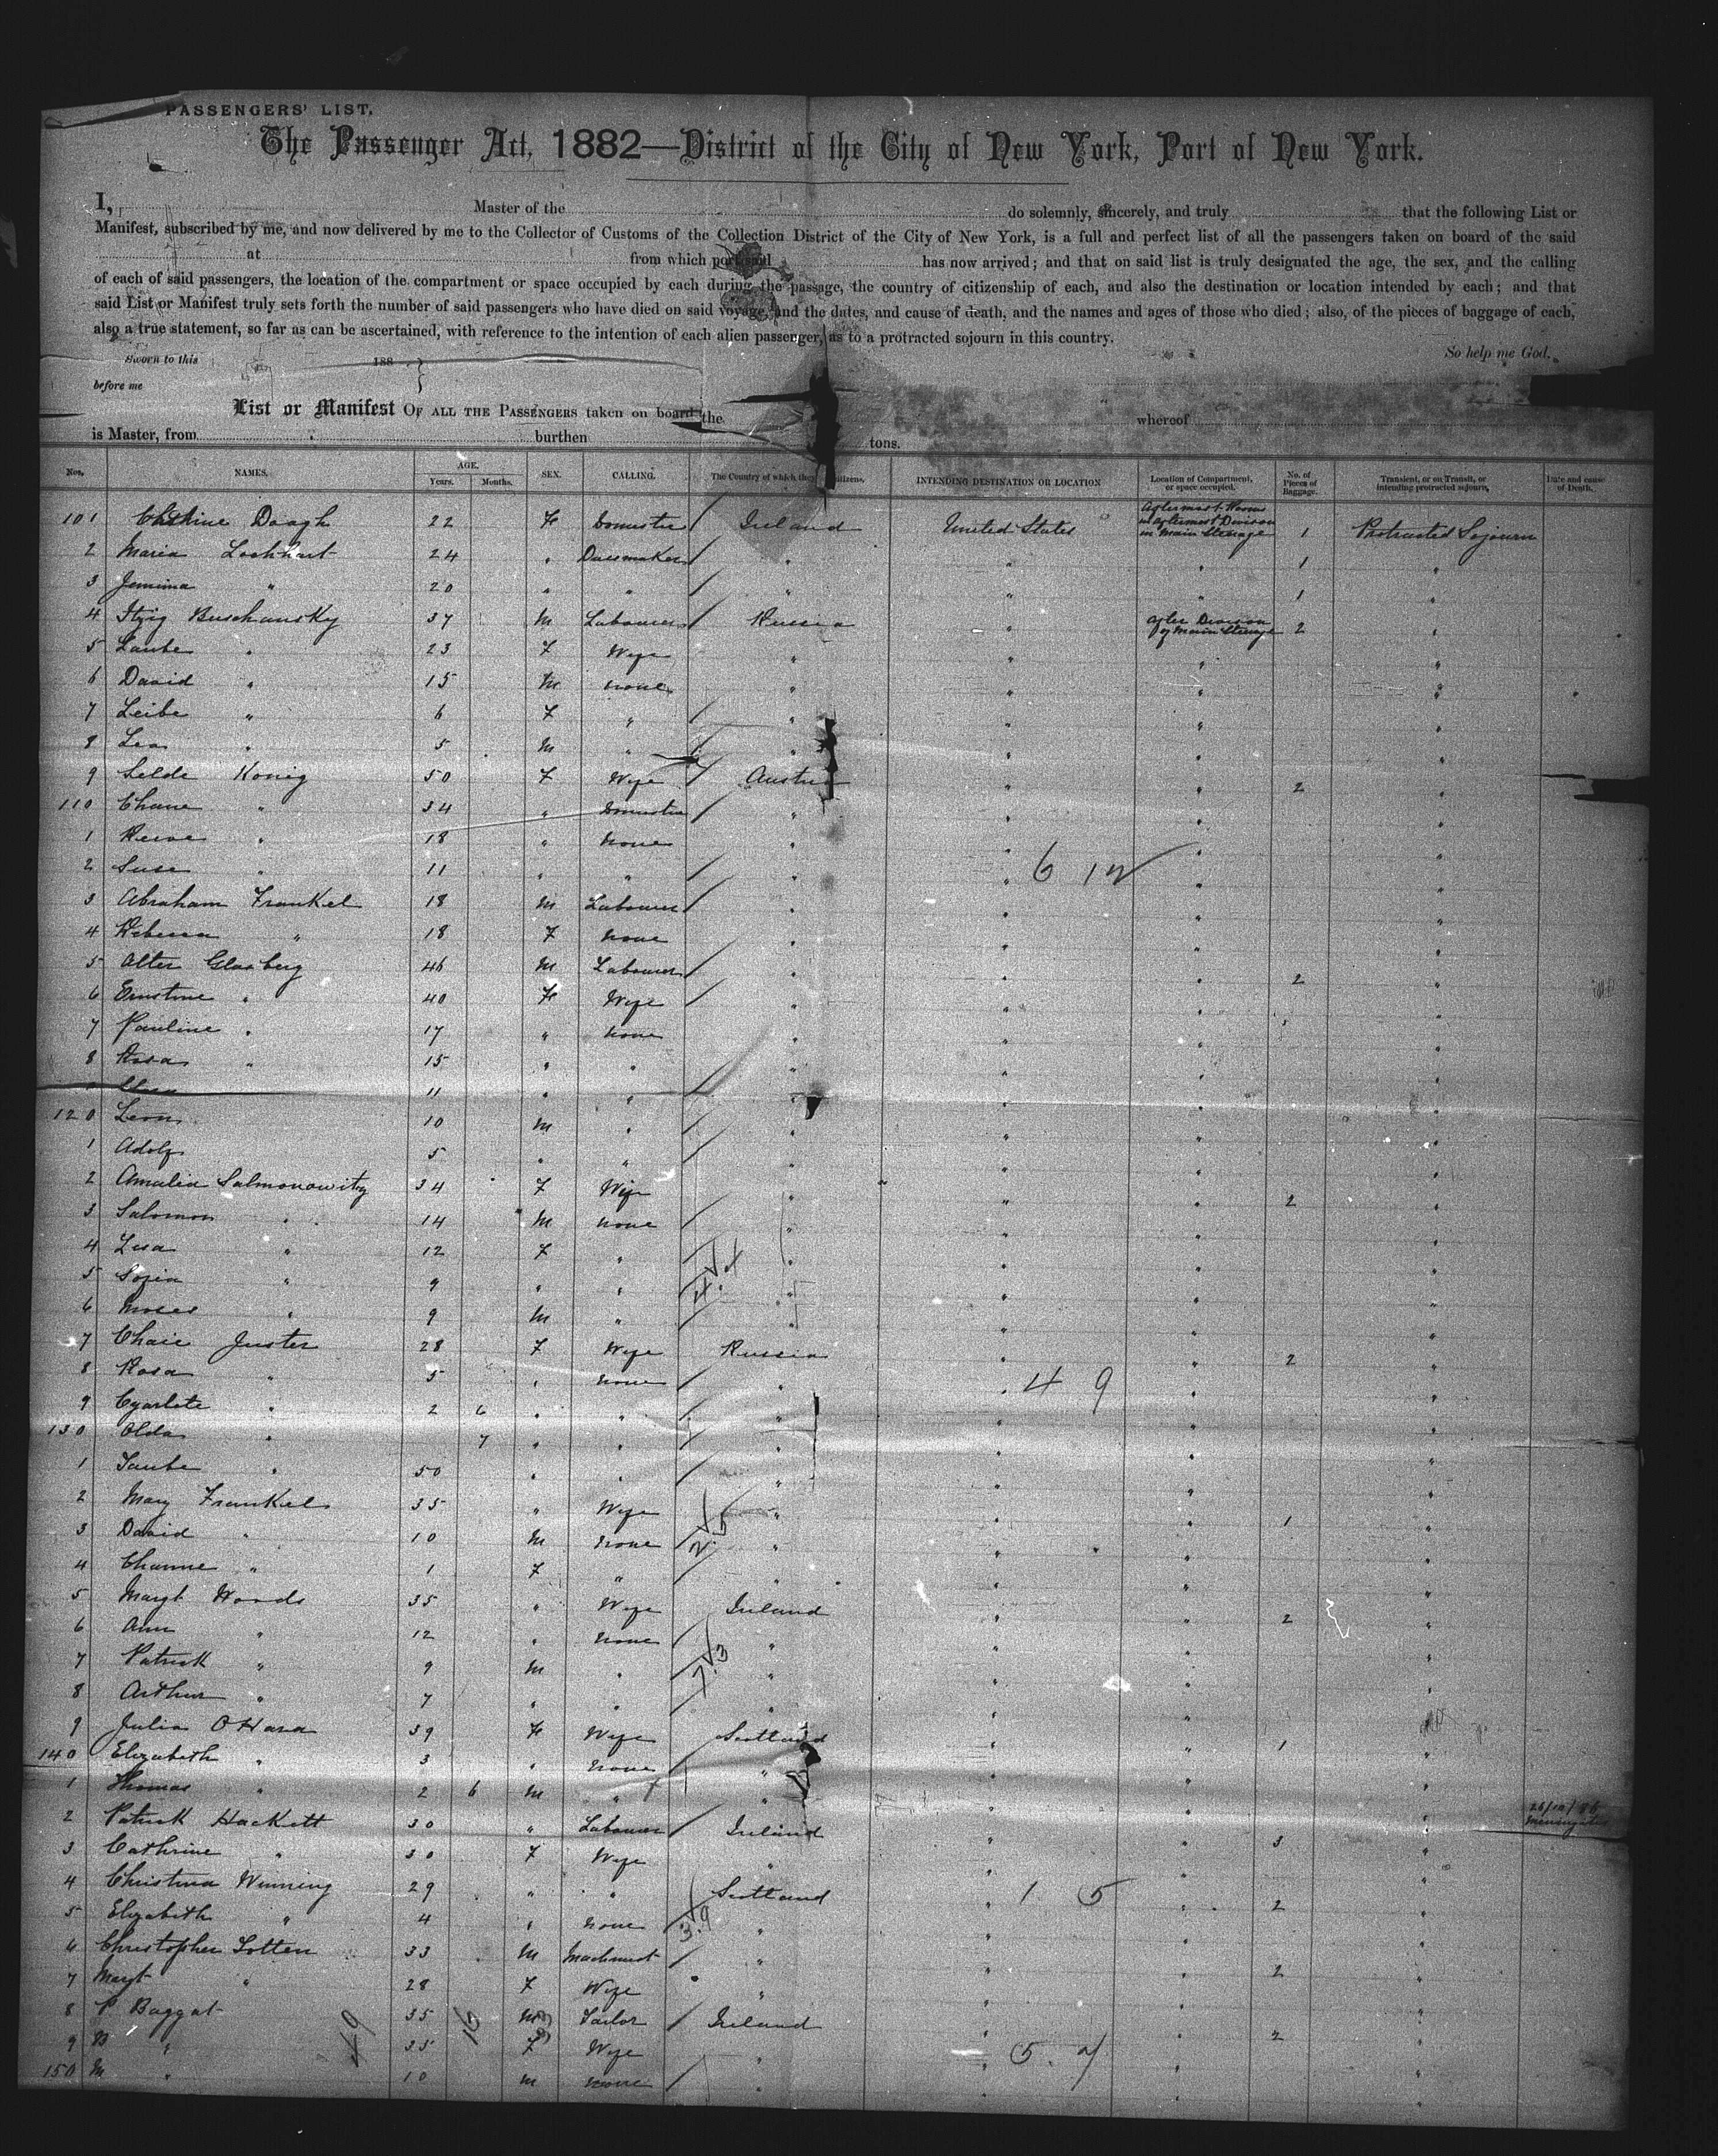 PASSENGERS' LIST.
The Passenger Act, 1882—District of the City of New York, Port of New York.
I, Master of the do solemnly, sincerely, and truly that the following List or
Manifest, subscribed by me, and now delivered by me to the Collector of Customs of the Collection District of the City of New York, is a full and perfect list of all the passengers taken on board of the said
at from which port said has now arrived; and that on said list is truly designated the age, the sex, and the calling
of each of said passengers, the location of the compartment or space occupied by each during the passage, the country of citizenship of each, and also the destination or location intended by each; and that
said List or Manifest truly sets forth the number of said passengers who have died on said voyage, and the dates, and cause of death, and the names and ages of those who died; also, of the pieces of baggage of each,
also a true statement, so far as can be ascertained, with reference to the intention of each alien passenger, as to a protracted sojourn in this country.
Sworn to this 188 } So help me God.
before me
List or Manifest OF ALL THE PASSENGERS taken on board the whereof
is Master, from burthen tons.
Nos. NAMES. AGE. Years. Months. SEX. CALLING. The Country of which they citizens. INTENDING DESTINATION OR LOCATION Location of Compartment, or space occupied. No. of Pieces of Baggage. Transient, or on Transit, or intending protracted sojourn. Date and cause of Death.
101 Doogh 22 Fe Domestic Ireland United States Aftermost Room in aftermost Division in Main Steerage 1 Protracted Sojourn
2 Maria Lockhart 24 " Dressmaker " " " 1 "
3 Jemima " 20 " " " " " 1 "
4 Itzig Buschansky 37 M Labourer Russia " After Division of Main Steerage 2 "
5 Taube " 23 F Wife " " " "
6 David " 15 M none " " " "
7 Leibe " 6 F " " " " "
8 Lea " 5 M " " " " "
9 Selde Konig 50 F Wife Austria " " 2 "
110 Chane " 34 " Domestic " " " "
1 " 18 " None " " " "
2 Suse " 11 " " " " " "
6 12
3 Abraham Frankel 18 M Labourer " " " "
4 Rebecca " 18 F none " " " "
5 Alter Glasberg 46 M Labourer " " " 2 "
6 Ernstine " 40 Fe Wife " " " "
7 Pauline " 17 " none " " " "
8 Rosa " 15 " " " " " "
11 " " " " " "
120 Leon 10 M " " " " "
1 Adolf 5 " " " " " "
2 Amalia Salmonowitz 34 F Wife " " " 2 "
3 Salomon " 14 M none " " " "
4 Lisa " 12 F " " " " "
5 Sofia " 9 " " " " " "
6 Moses " 9 M " " " " "
7 Chaie Juster 28 F Wife Russia " " 2 "
8 Rosa " 5 " none " " " "
4 9
9 Cyarlote " 2 6 " " " " " "
130 Olda " 7 " " " " " "
1 Taube " 50 " " " " " "
2 Mary Frankel 35 " Wife " " " 1 "
3 David " 10 M none " " " "
4 Channe " 1 F " " " " "
5 Margt Woods 35 " Wife Ireland " " 2 "
6 Ann " 12 " none " " " "
7 Patrick " 9 M " " " " "
8 Arthur " 7 " " " " " "
9 Julia OHara 39 Fe Wife Scotland " " 1 "
140 Elizabeth " 3 " none " " " "
1 Thomas " 2 6 M " " " " "
2 Patrick Hackett 30 " Labourer Ireland " " 3 "
3 Cathrine " 30 F Wife " " " "
4 Christina Winning 29 " " Scotland " " 2 "
1 5
5 Elizabeth " 4 " none " " " "
6 Christopher Totten 33 M Machinist " " " 2 "
7 Margt " 28 F Wife " " " "
8 P Baggat 35 M Tailor Ireland " " 2 "
9 " 35 F Wife " " " "
5. 7
150 M " 10 M none " " " "
49 16